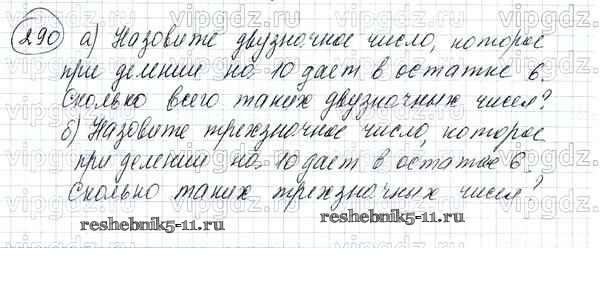 290 а) Назовите двузначное число, которое
при делении на 10 дает в остатке 6.
Сколько всего таких двузначных чисел?
б) Назовите трехзначное число, которое
при делении на 10 дает в остатке 6.
Сколько таких трехзначных чисел?
reshebnik5-11.ru
reshebnik5-11.ru